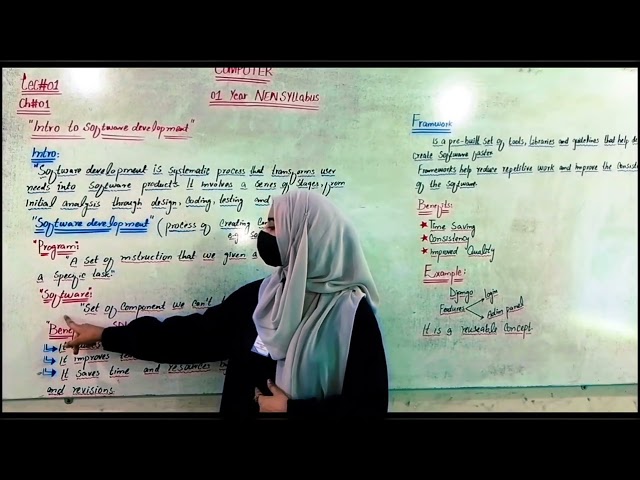 Lec#01
Ch#01
COMPUTER
01 Year NEW Syllabus
"Intro to Software development"
Intro:
"Software development is systematic process that transforms user
needs into Software product. It involves a series of stages, from
Initial analysis through design, Coding, testing and
"Software development" (process of creating
"Program:
A set of instruction that we given a
a specific task"
"Software":
"Set of component we can't
"Bene
It
It improves
It saves time and resources
and revisions
Framwork
is a pre-built set of tools, libraries and guidelines that help
Create Software faster
Frameworks help reduce repetitive work and improve the
of the software.
Benefits:
★ Time Saving
★ Consistency
★ Improved Quality
Example:
Django
Features
login
Admin panel
It is a reuseable concept